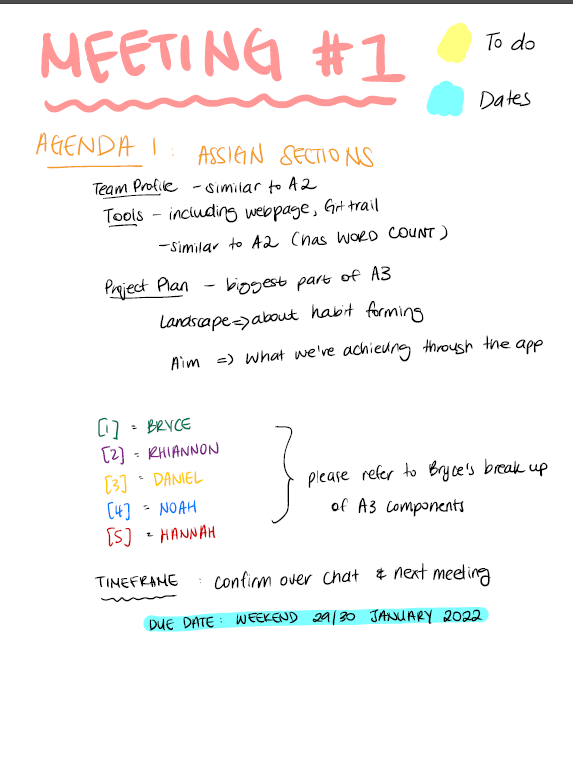 MEETING #1
To do
Dates
AGENDA 1 : ASSIGN SECTIONS
Team Profile - similar to A2
Tools - including webpage, Git trail
- similar to A2 (has WORD COUNT)
Project Plan - biggest part of A3
Landscape => about habit forming
Aim => What we're achieving through the app
[1] = BRYCE
[2] = RHIANNON
[3] = DANIEL
[4] = NOAH
[5] = HANNAH
please refer to Bryce's break up
of A3 components
TIMEFRAME : confirm over chat & next meeting
DUE DATE: WEEKEND 29/30 JANUARY 2022